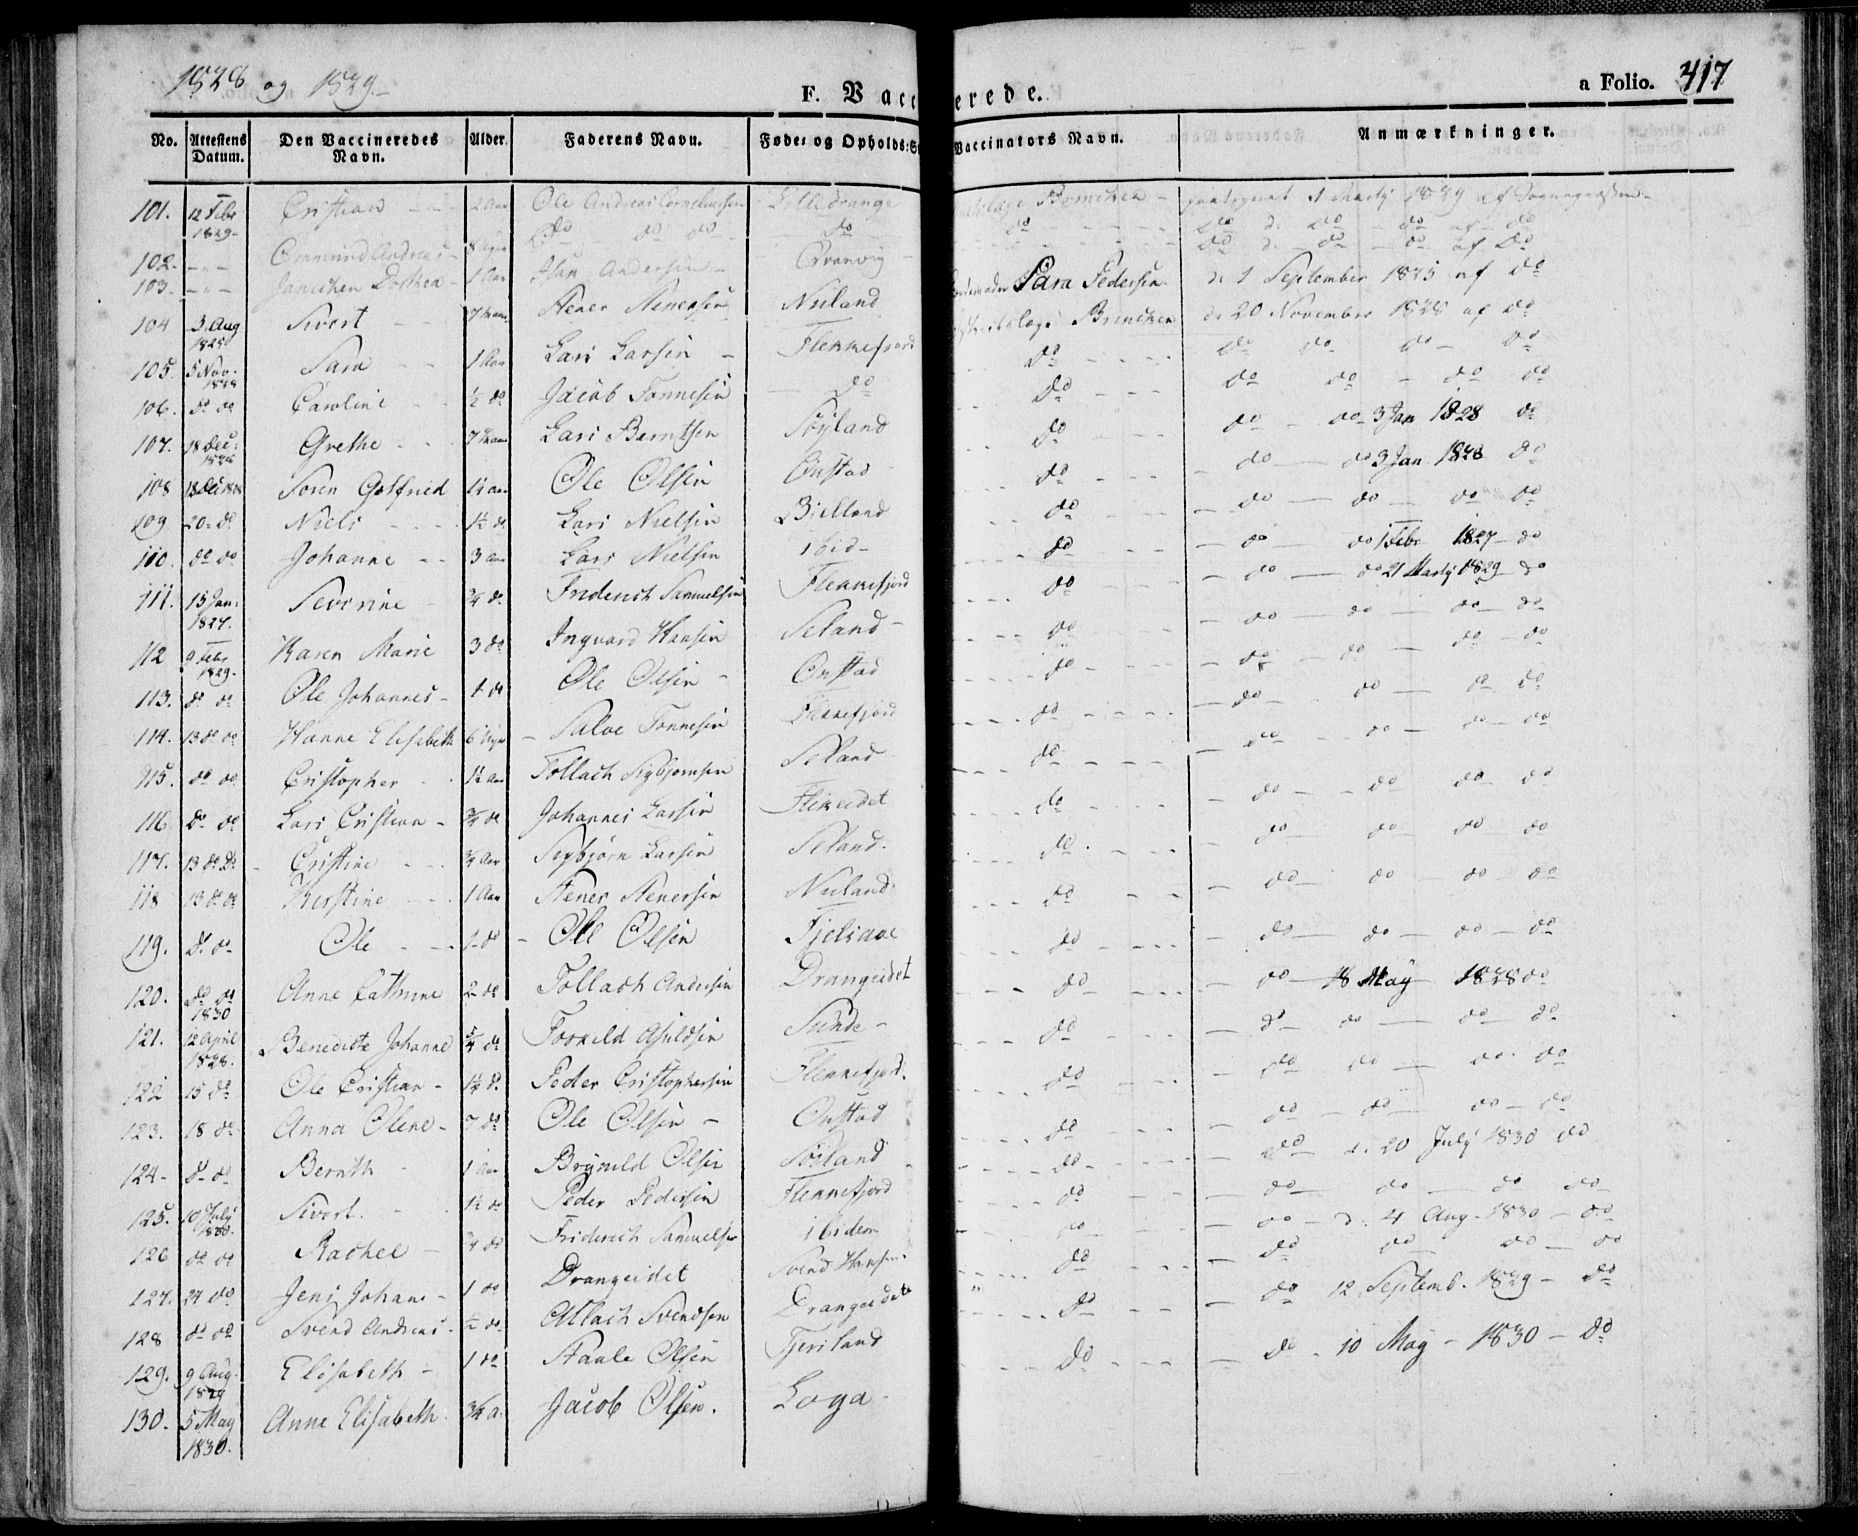 1828 og 1829 F. Vacc erede. a Folio. 417
No. Attestens Datum. Den Vaccineredes Navn. Alder. Faderens Navn. Føde- og Opholds-St Vaccinators Navn. Anmærkninger.
101. 12 Febr 1829 Cristian 2 Aar Ole Andreas Corneliussen Lilledrange Brincken 1829 af
do do do do do do do do af do
102. Ommund Andreas 8 Uger do do af do
103. Janichen Dorthea 1 Aar Andersen Sara Pedersen d 1 September 1825 af do
104 3 Aug 1825 Sivert 7 Stener Stenersen Nuland Brincken d 20 November 1828 af do
105. 5 Nov. 1828 Sara 1 Aar Lars Larsen Flekkefjord do do do do do
106. do do Caroline ½ do Jacob Tønnesen do do do do do do
107. 18 Dec: 1828 Grethe 7 Lars Berntsen Søyland do do do 3 Jan 1828 do
108 18 Dec 1828 Søren Gotfried 1½ Aar Ole Olsen Onstad do do do 3 Jan 1828 do
109. 20 do Niels 1½ do Lars Nielsen Bielland do do do do do
110. do do Johanne 3 Aar Lars Nielsen ibid do do do 1 Febr 1827 do
111. 15 Jan: 1827. Severine ¾ do Friderich Samuelsen Flekkefjord do do do 21 Martij 1829 do
112 9 Febr 1829. Karen Marie 3 do Ingvard Hansen Seland do do do do do
113. do do Ole Johannes 1 do Ole Olsen Onstad do do do do do
114. 13 do do Hanne Elisabeth 6 Uger Salve Tønnesen Flekkefjord do do do do do
115. do do Cristopher 1½ Aar Tollach Sigbjørnsen Seland do do do do do
116 do do Lars Cristian ¾ do Johannes Larsen Flikeidet do do do do do
117. 13 do do Cristine ¾ Aar Sigbjørn Larsen Seland. do do do do do
118 13 do do Kirstine 1 Aar Stener Stenersen Nuland do do do do do
119. do do Ole 1 do Ole Olsen Fjelsaae do do do do do
120. do do 1830 Anne Cathrine 2 do Tollach Andersen Drangeidet do do 18 May 1828 do
121. 12 April 1828. Benedicte Johanne ¾ do Torkild Asuldsen Sunde do do do do do
122 15 do Ole Cristian 1½ do Peder Cristophersen Flekkefjord. do do do do do
123. 18 do Anna Olene 7 do Ole Olsen Onstad do do do do do
124. do do Bernth 1 Aar Brynild Olsen Søiland do do d. 20 July 1830 do
125. 10 July 1830. Sivert. 1½ do Peder Pedersen Flekkefjord do do do do do
126 do do Rachel ¾ do Friderich Samuelsen ibidem do do d. 4 Aug. 1830 do
127. 24 do Jens Johan 1 do Drangeidet Svend Hansen. do do do do do
128 do do Svend Andreas ½ do Atlach Svendsen Drangeidet do do 12 Septemb. 1829 do
129. 9 Aug. 1829 Elisabeth 1 do Staale Olsen
130. 5 May 1830. Anne Elisabeth ¾ A. Jacob Olsen. Loga do do 10 May 1830 do